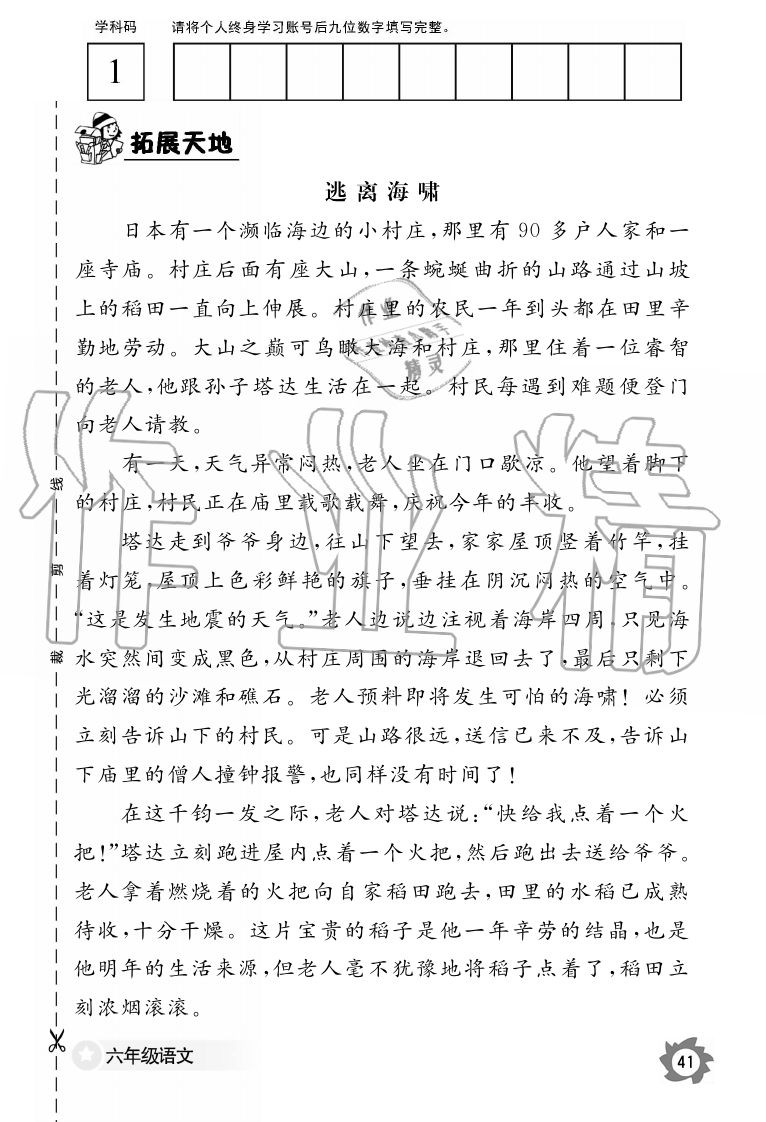 学科码 请将个人终身学习账号后九位数字填写完整。
1
拓展天地
逃离海啸
日本有一个濒临海边的小村庄,那里有 90 多户人家和一
座寺庙。村庄后面有座大山,一条蜿蜒曲折的山路通过山坡
上的稻田一直向上伸展。村庄里的农民一年到头都在田里辛
勤地劳动。大山之巅可鸟瞰大海和村庄,那里住着一位睿智
的老人,他跟孙子塔达生活在一起。村民每遇到难题便登门
向老人请教。
有一天,天气异常闷热,老人坐在门口歇凉。他望着脚下
的村庄,村民正在庙里载歌载舞,庆祝今年的丰收。
塔达走到爷爷身边,往山下望去,家家屋顶竖着竹竿,挂
着灯笼,屋顶上色彩鲜艳的旗子,垂挂在阴沉闷热的空气中。
“这是发生地震的天气。”老人边说边注视着海岸四周,只见海
水突然间变成黑色,从村庄周围的海岸退回去了,最后只剩下
光溜溜的沙滩和礁石。老人预料即将发生可怕的海啸!必须
立刻告诉山下的村民。可是山路很远,送信已来不及,告诉山
下庙里的僧人撞钟报警,也同样没有时间了!
在这千钧一发之际,老人对塔达说:“快给我点着一个火
把!”塔达立刻跑进屋内点着一个火把,然后跑出去送给爷爷。
老人拿着燃烧着的火把向自家稻田跑去,田里的水稻已成熟
待收,十分干燥。这片宝贵的稻子是他一年辛劳的结晶,也是
他明年的生活来源,但老人毫不犹豫地将稻子点着了,稻田立
刻浓烟滚滚。
线
剪
裁
作业精
作业
精灵
六年级语文
41